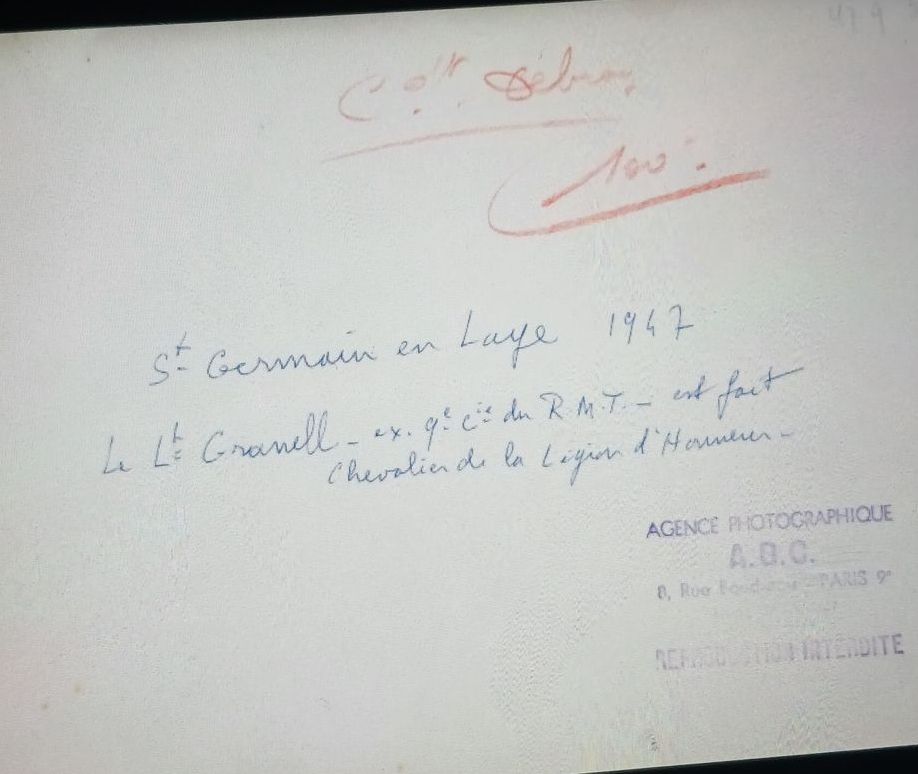 Cᵒⁿ
100
Sᵗ Germain en Laye 1947
Le Lᵗ Granell - ex. 9ᵉ Cⁱᵉ du R.M.T. - est fait
Chevalier de la Légion d'Honneur -
AGENCE PHOTOGRAPHIQUE
8, Rue PARIS 9ᵉ
REPRODUCTION INTERDITE